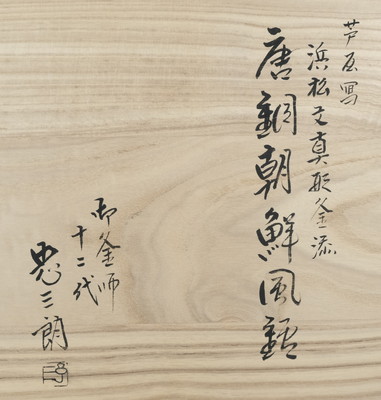 芦屋写
浜松文真形釜添
唐銅朝鮮風鑪
御釜師
十二代
忠三朗